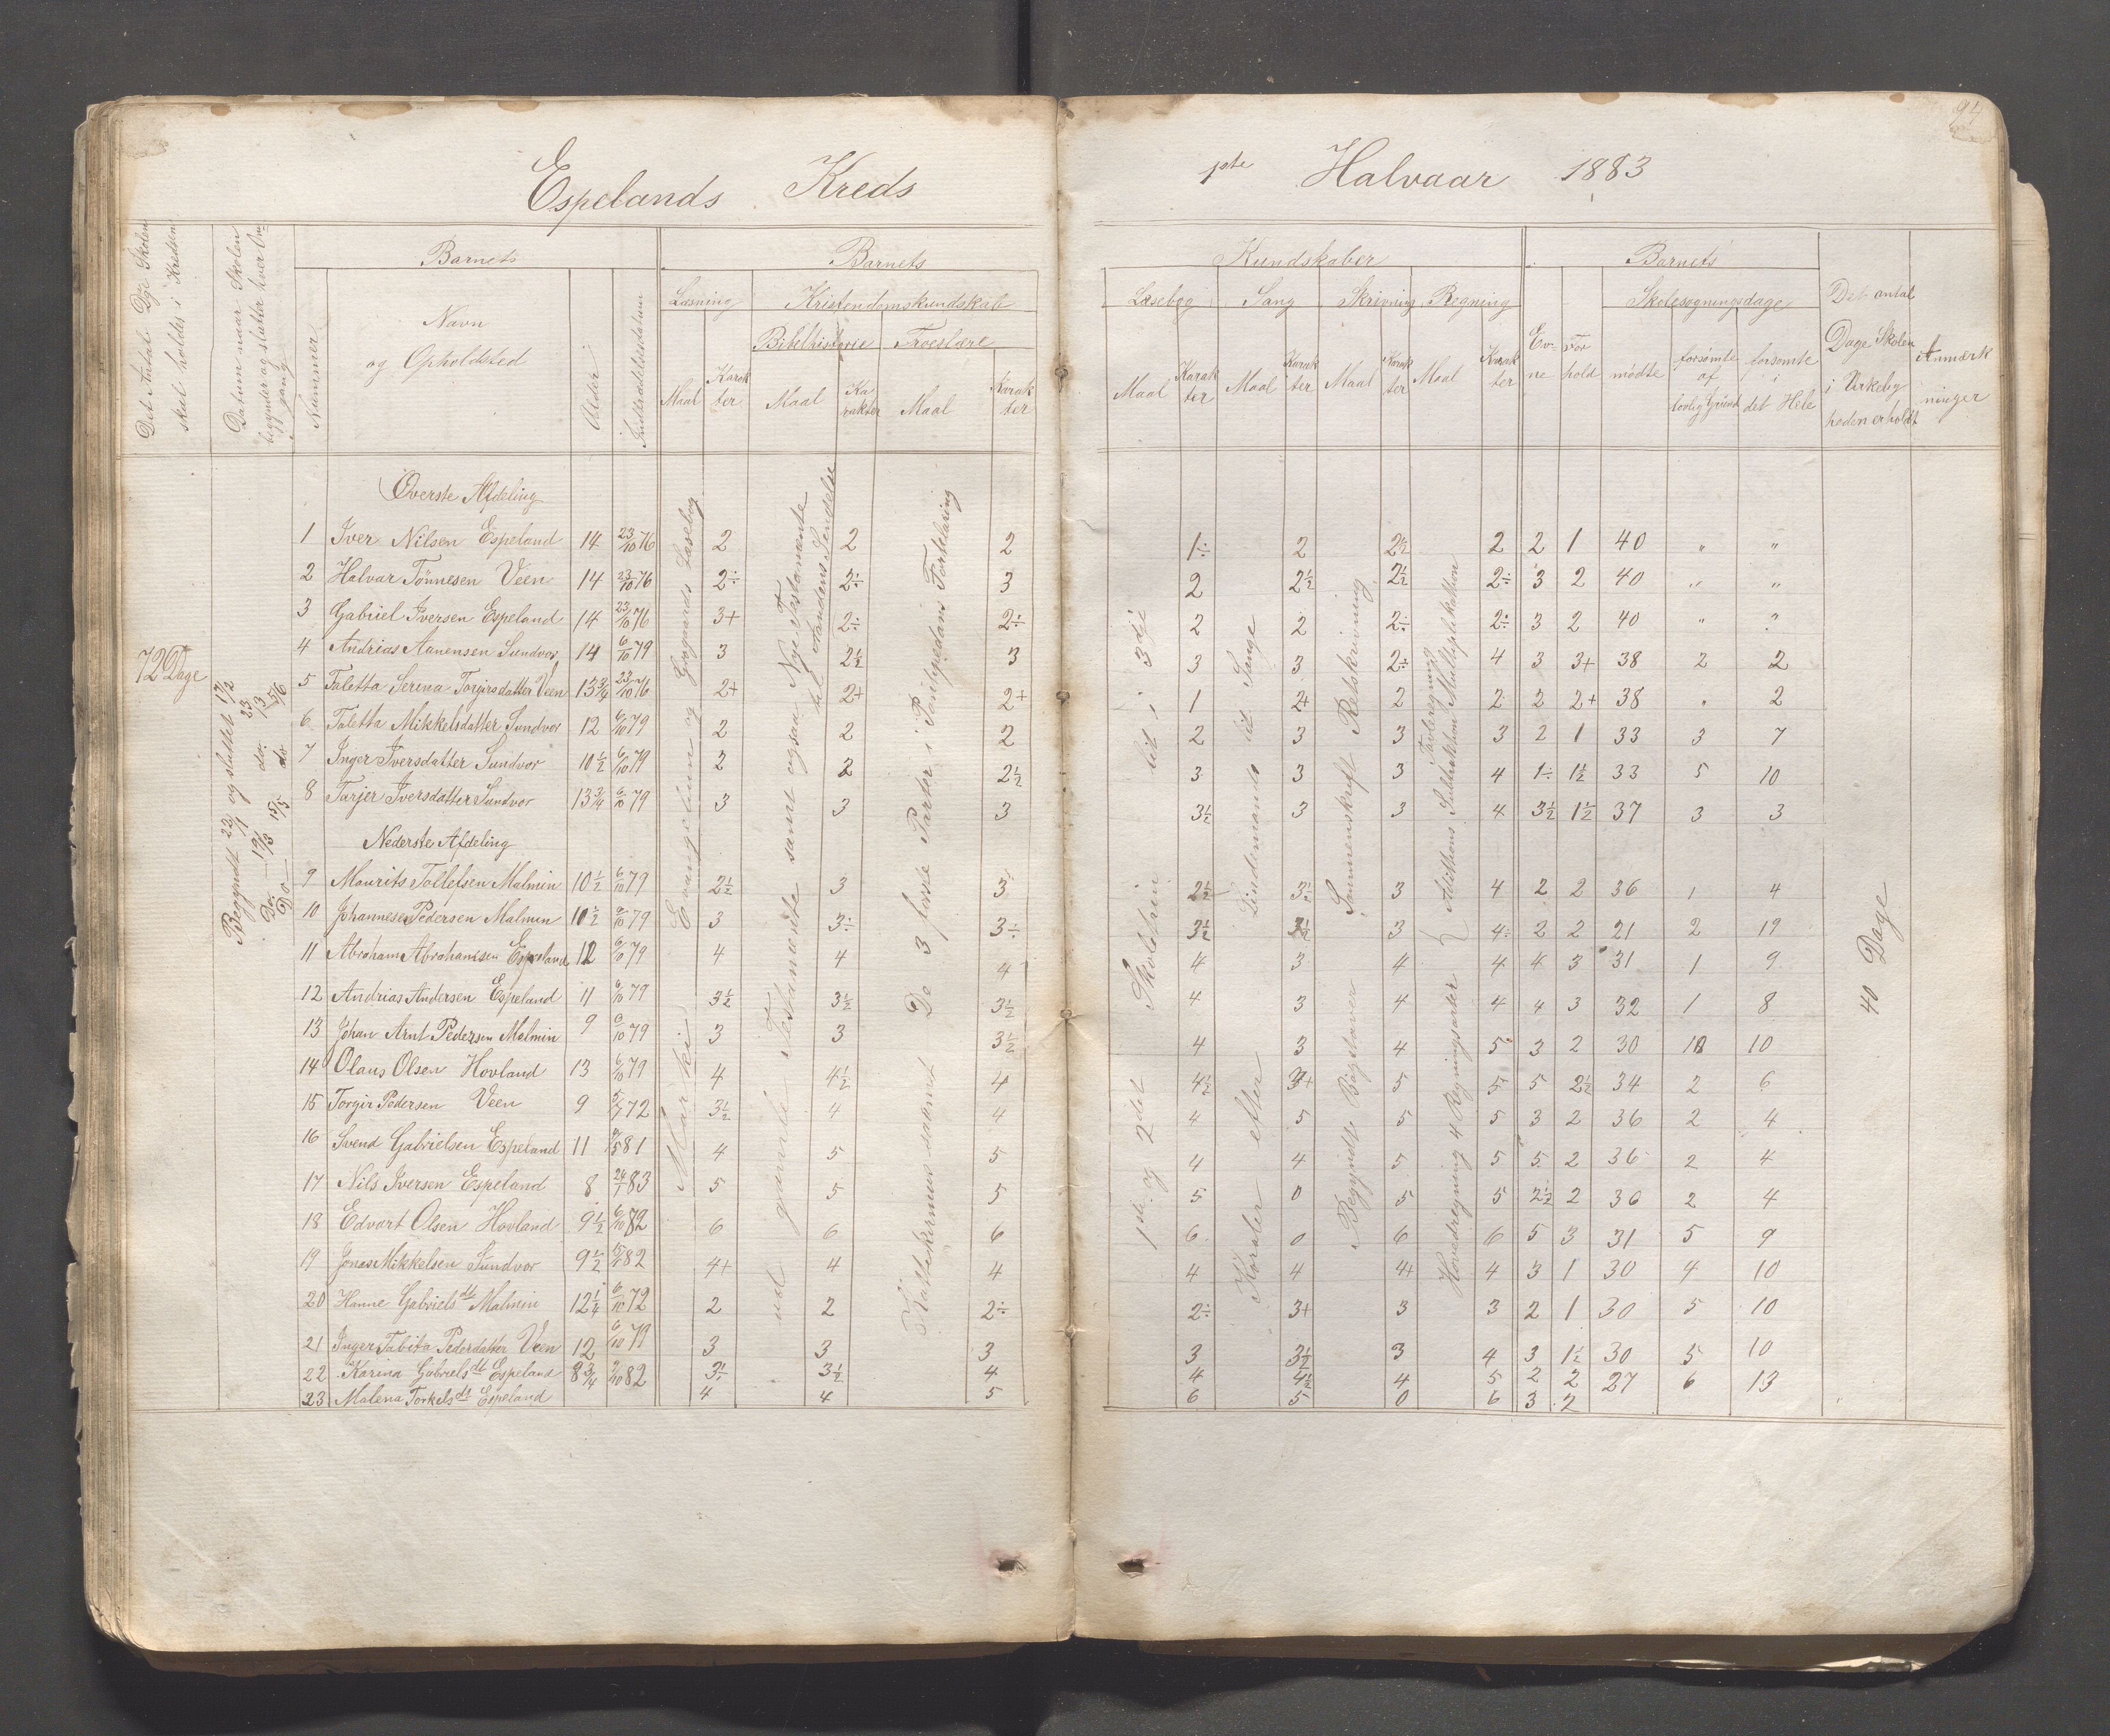 94
Espelands Kreds
1ste Halvaar 1883
Det Antal Dge Skolen
skal holdes i Kredsen
Datum naar Skolen
begynder og slutter hver Om-
gang
Nummer
Barnets
Navn
og Opholdsted
Alder
Indtrædelsesdatum
Barnets
Læsning
Maal
Karak
ter
Kristendomskundskab
Bibelhistorie
Maal
Ka-
rakter
Troeslære
Maal
Karak
ter
Kundskaber
Læsebog
Maal
Karak
ter
Sang
Maal
Karak
ter
Skrivning
Maal
Karak
ter
Regning
Maal
Karak
ter
Barnets
Ev-
ne
For
hold
Skolesøgningsdage
mødte
forsømte
af
lovlig Grund
forsømte
i
det Hele
Det antal
Dage Skolen
i Virkelig
heden er holdt
Anmærk
ninger
72 Dage
Begyndt 22/1 og sluttet 17/2
Do. 12/3 do. 13
Do 15/5 do 5/6
Evangelium og Grogaards Læsebog
Nye Testamente
Testamente samt ogsaa
De 3 første Parter i Pontopedans Forklaring
Katekismus samt
1ste og 2det Skoletrin
lit i 3dje
Koraler efter Lindemands
lit Sange
Begyndt Bogstaver
Sammenskrift Retskrivning
Hovedregning 4 Regningsarter
Tavleregning
Aditions Subtraktion Multiplikation
40 Dage
Øverste Afdeling
1 Iver Nilsen Espeland 14 23/10 76 2 2 2 1÷ 2 2½ 2 2 1 40 " "
2 Halvar Tønnesen Veen 14 23/10 76 2÷ 2÷ 3 2 2½ 2½ 2÷ 3 2 40 " "
3 Gabriel Iversen Espeland 14 23/10 76 3+ 2÷ 2÷ 2 2 2÷ 2÷ 3 2 40 "
4 Andrias Aanensen Sundvor 14 6/10 79 3 2½ 3 3 3 2÷ 4 3 3+ 38 2 2
5 Taletta Serina Torgirsdatter Veen 13¾ 23/10 76 2+ 2+ 2+ 1 2+ 2 2 2 2+ 38 " 2
6 Taletta Mikkelsdatter Sundvor 12 6/10 79 2 2 2 2 3 3 3 2 1 33 3 7
7 Inger Iversdatter Sundvor 10½ 6/10 79 2 2 2½ 3 3 3 4 1÷ 1½ 33 5 10
8 Tarjer Iversdatter Sundvor 13¾ 6/10 79 3 3 3 3½ 3 3 4 3½ 1½ 37 3 3
Nederste Afdeling
9 Maurits Tollefsen Malmin 10½ 6/10 79 2½ 3 3 2½ 3÷ 3 4 2 2 36 1 4
10 Johannes Pedersen Malmin 10½ 6/10 79 3 3÷ 3÷ 3½ 3 4÷ 2 2 21 2 19
11 Abraham Abrahamsen Espeland 12 6/10 79 4 4 4 4 3 4 4 4 3 31 1 9
12 Andrias Andersen Espeland 11 6/10 79 3½ 3½ 3½ 4 3 4 4 4 3 32 1 8
13 Johan Arnt Pedersen Malmin 9 6/10 79 3 3 3½ 4 3 4 5 3 2 30 10 10
14 Olaus Olsen Hovland 13 6/10 79 4 4½ 4 4½ 3+ 5 5 5 2½ 34 2 6
15 Torgir Pedersen Veen 9 5/7 72 3½ 4 4 4 5 5 5 3 2 36 2 4
16 Svend Gabrielsen Espeland 11 81 4 5 5 4 4 5 5 5 2 36 2 4
17 Nils Iversen Espeland 8 24/1 83 5 5 5 5 0 5 5 2½ 2 36 2 4
18 Edvart Olsen Hovland 9½ 6/10 82 6 6 6 6 0 6 6 5 3 31 5 9
19 Jonas Mikkelsen Sundvor 9½ 82 4+ 4 4 4 4 4+ 4 3 1 30 4 10
20 Hanne Gabrielsdt Malmin 12¼ 6/10 72 2 2 2÷ 2÷ 3+ 3 3 2 1 30 5 10
21 Inger Tabita Pedersdatter Veen 12 6/10 79 3 3 3 3 3½ 3 4 3 1½ 30 5 10
22 Karina Gabrielsdt Espeland 8¾ 82 3½ 3½ 4 4 4½ 4 5 2 2 27 6 13
23 Malena Torkelsdt Espeland 4 4 5 6 5 0 6 3 2